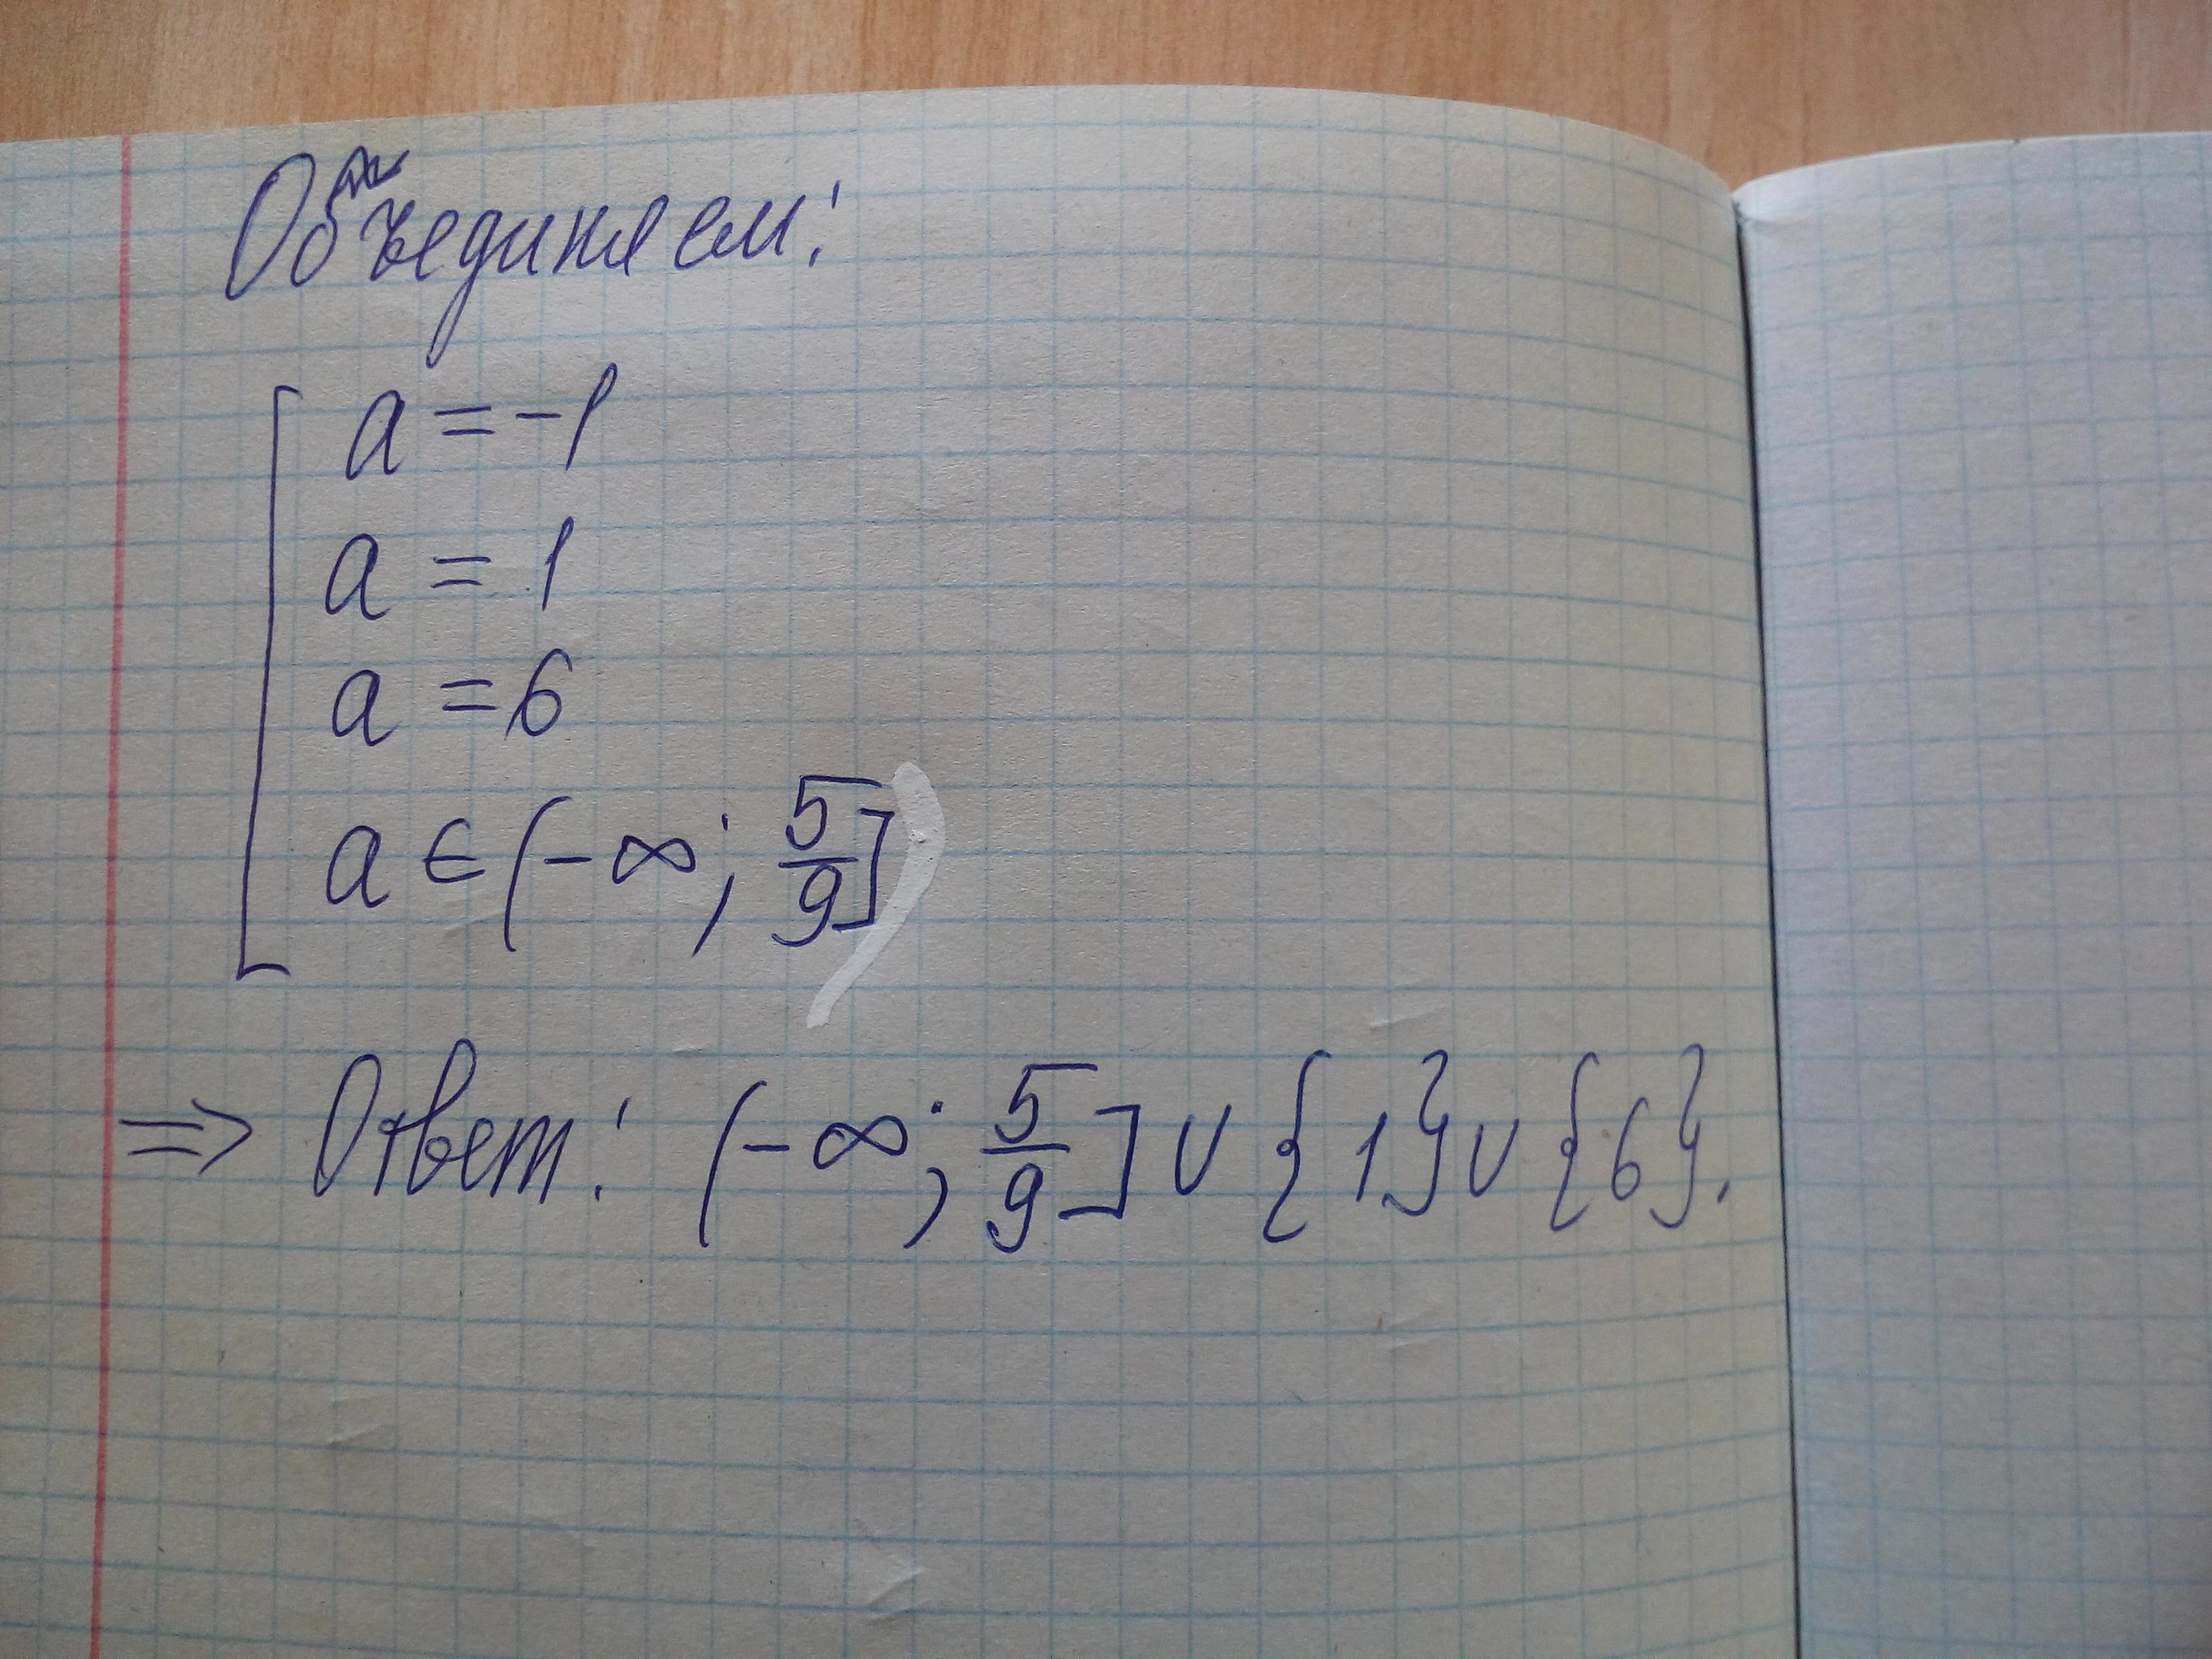 Объединяем:
a = -1
a = 1
a = 6
a ∈ (-∞; 5/9]
⇒ Ответ: (-∞; 5/9] ∪ {1} ∪ {6}.